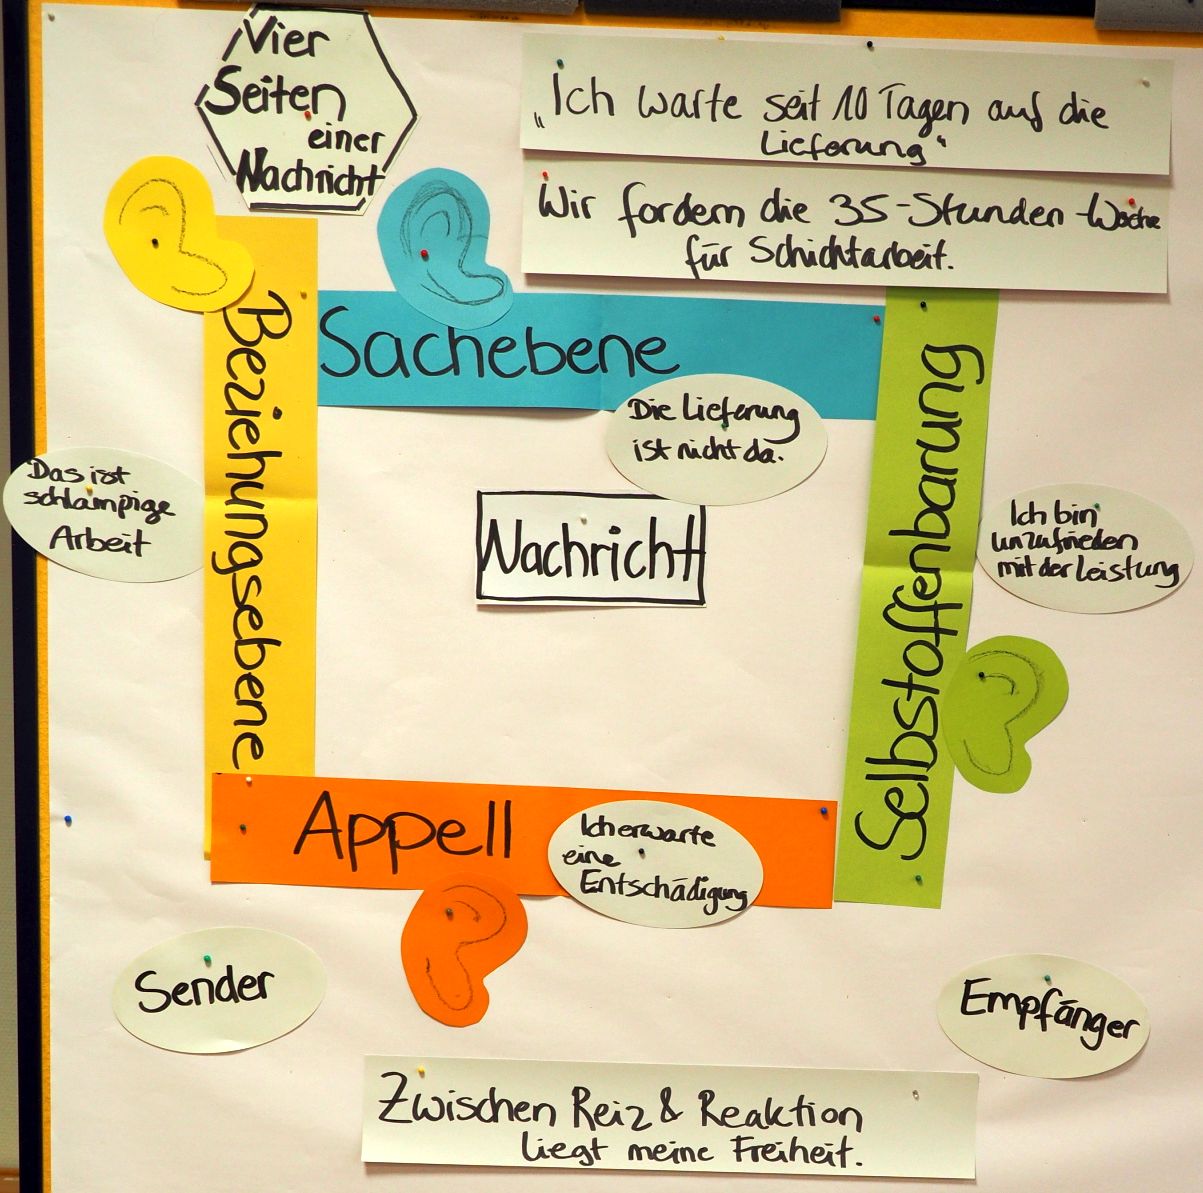 Vier
Seiten
einer
Nachricht
„Ich warte seit 10 Tagen auf die
Lieferung“
Wir fordern die 35-Stunden-Woche
für Schichtarbeit.
Sachebene
Beziehungsebene
Selbstoffenbarung
Die Lieferung
ist nicht da.
Das ist
schlampige
Arbeit
Nachricht
Ich bin
unzufrieden
mit der Leistung
Appell
Ich erwarte
eine
Entschädigung
Sender
Empfänger
Zwischen Reiz & Reaktion
liegt meine Freiheit.